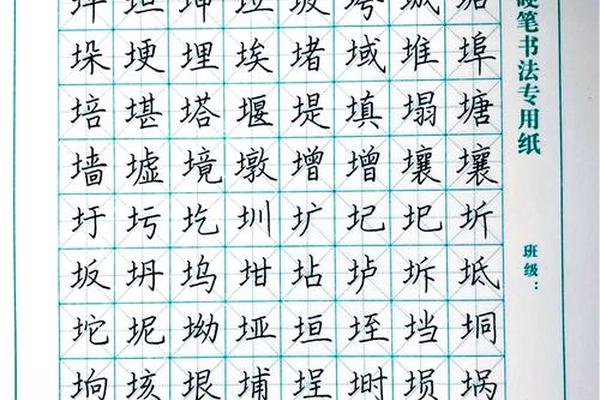 垣 坤 垃 坡 垮 城
垛 埂 埋 埃 堵 域 堆 埠
培 堪 塔 堰 堤 填 塌 塘
墙 墟 境 墩 增 增 壤 壤
圩 圬 圪 圳 圹 圮 圯 圻
坂 坍 坞 坩 坫 垆 坼 坻
坨 坭 坳 垭 垣 垤 垱 垌
垧 垓 垠 埔 埕 埘 埙 埚
硬笔书法专用纸
班级：